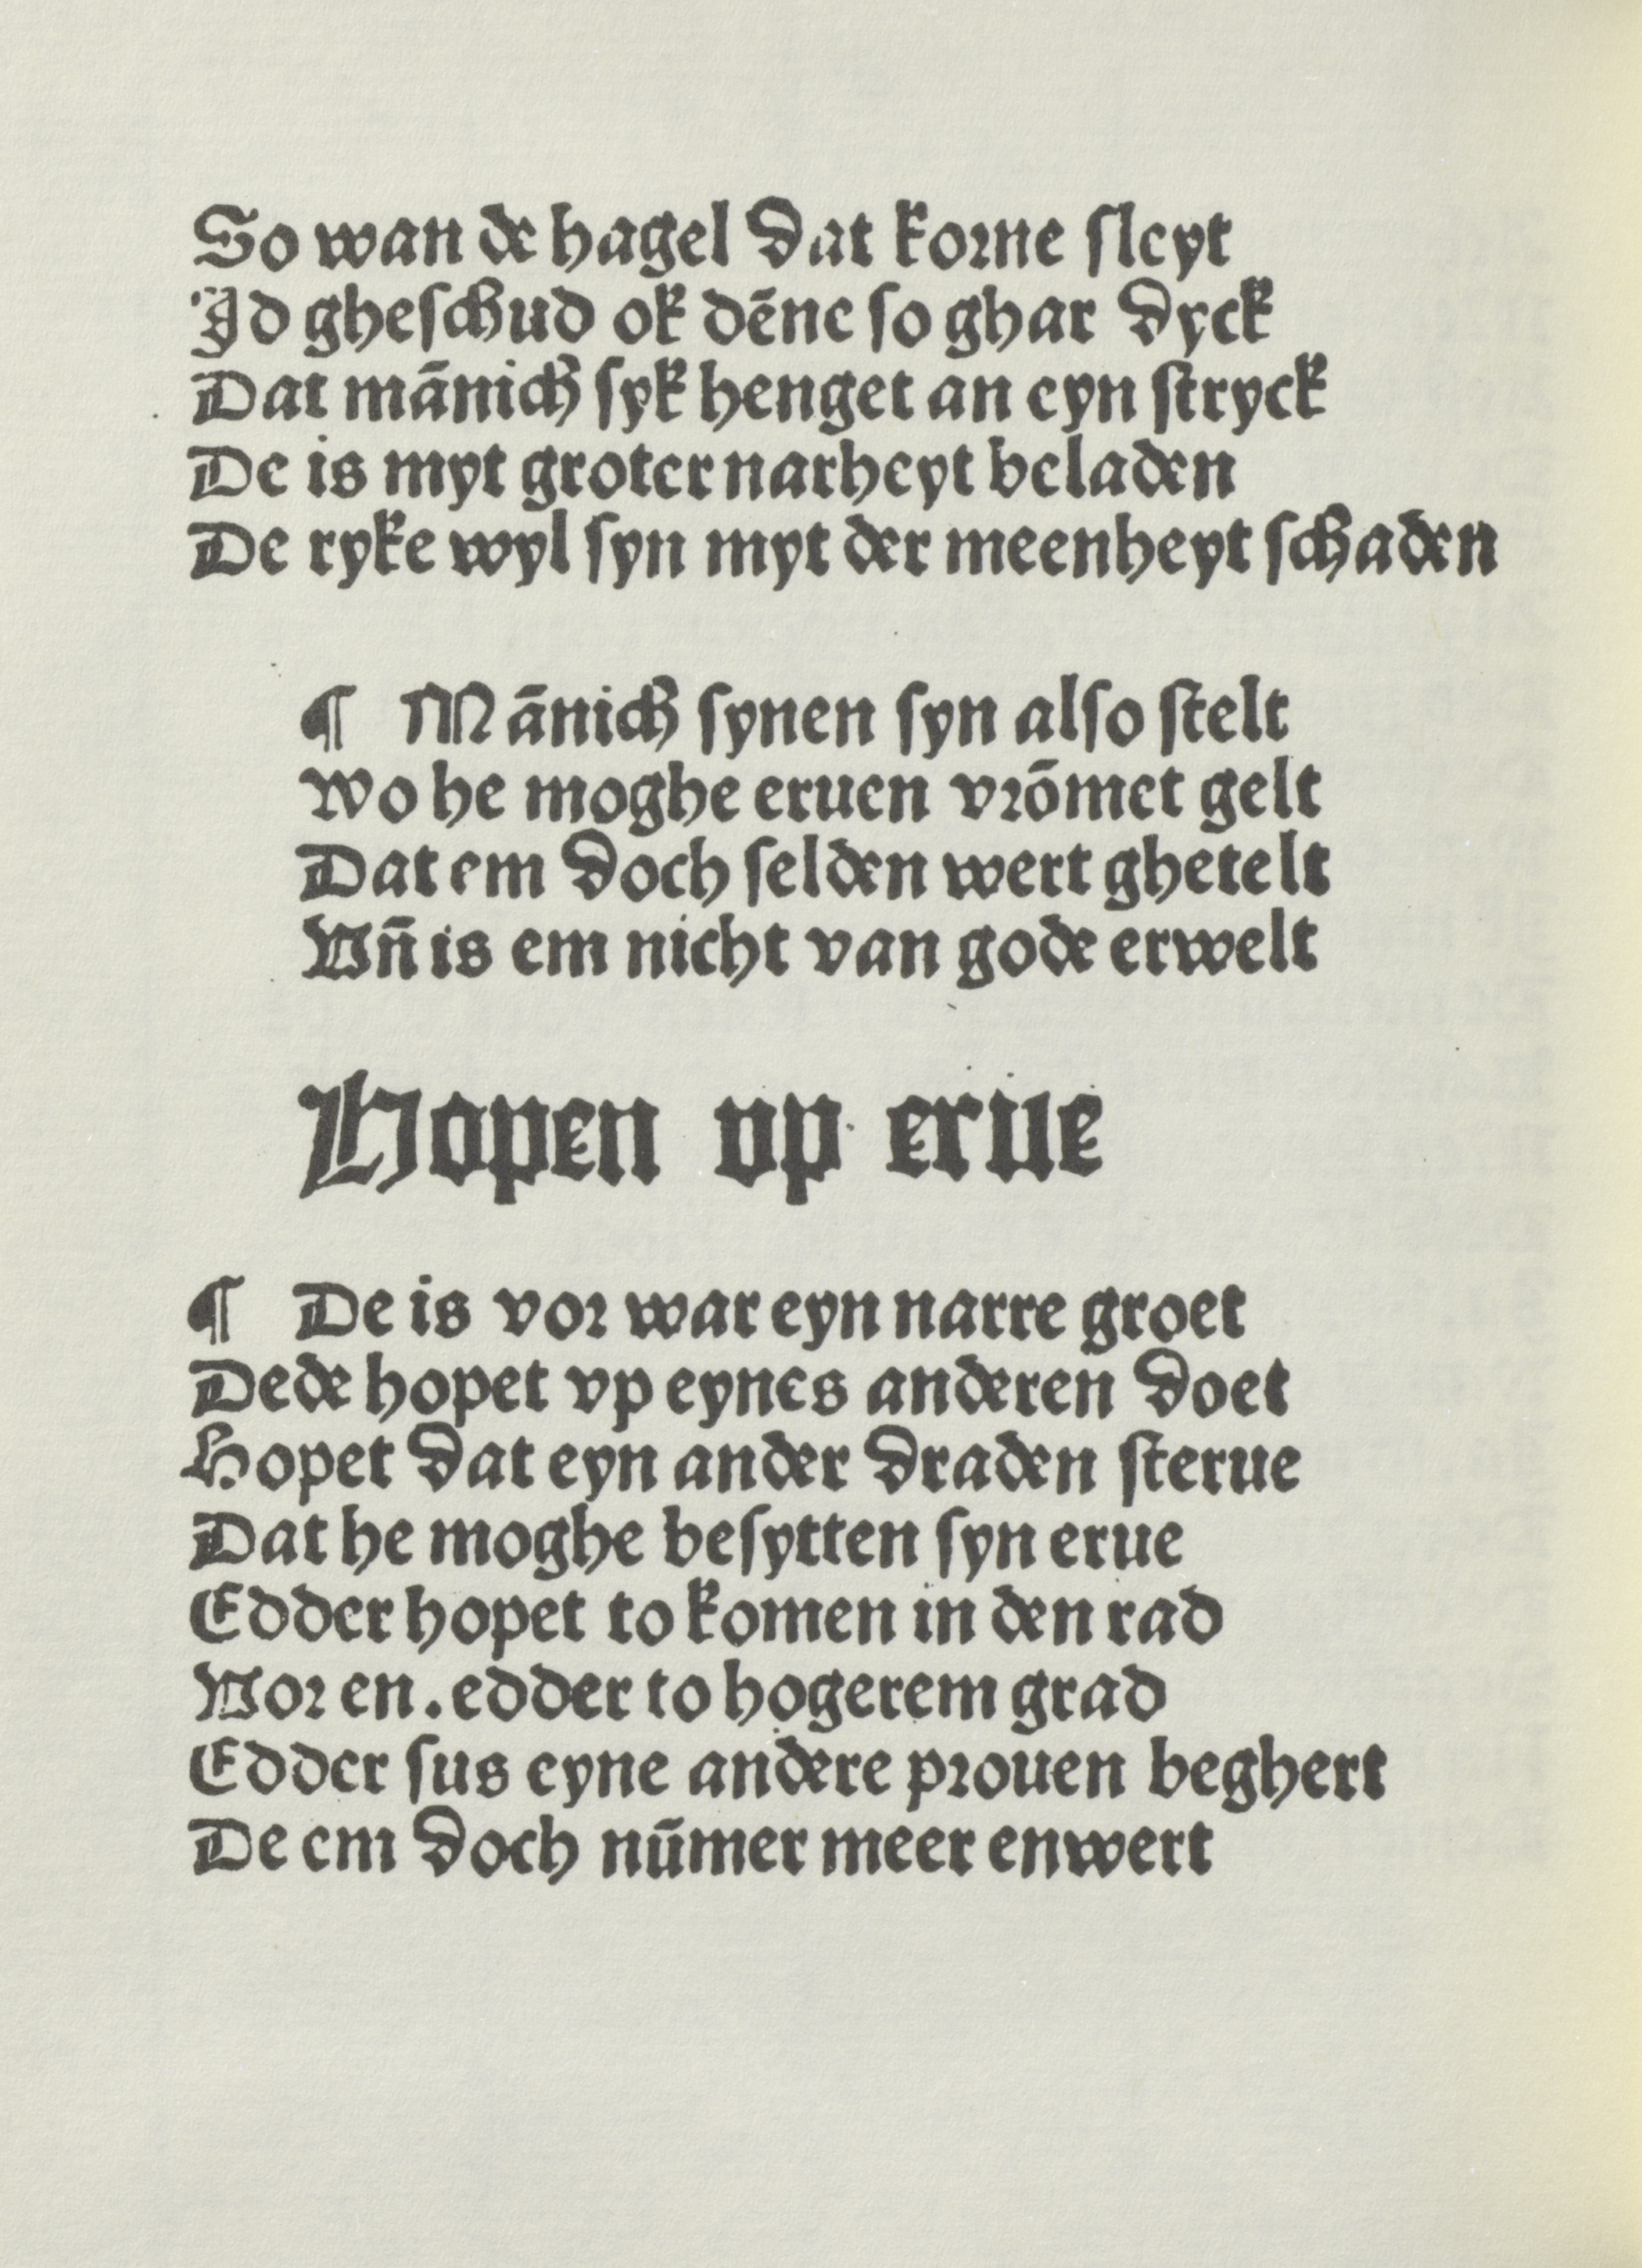 So wan de hagel dat korne sleyt
Id gheschud ok dēne so ghar dyck
Dat mānich syk henget an eyn stryck
De is myt groter narheyt beladen
De ryke wyl syn myt der meenheyt schaden
¶ Mānich synen syn also stelt
Wo he moghe eruen vrōmet gelt
Dat em doch selden wert ghetelt
Vn̄ is em nicht van gode erwelt
Hopen vp erue
¶ De is vor war eyn narre groet
Dede hopet vp eynes anderen doet
Hopet dat eyn ander draden sterue
Dat he moghe besytten syn erue
Edder hopet to komen in den rad
Vor en. edder to hogerem grad
Edder sus eyne andere prouen beghert
De em doch nūmer meer enwert